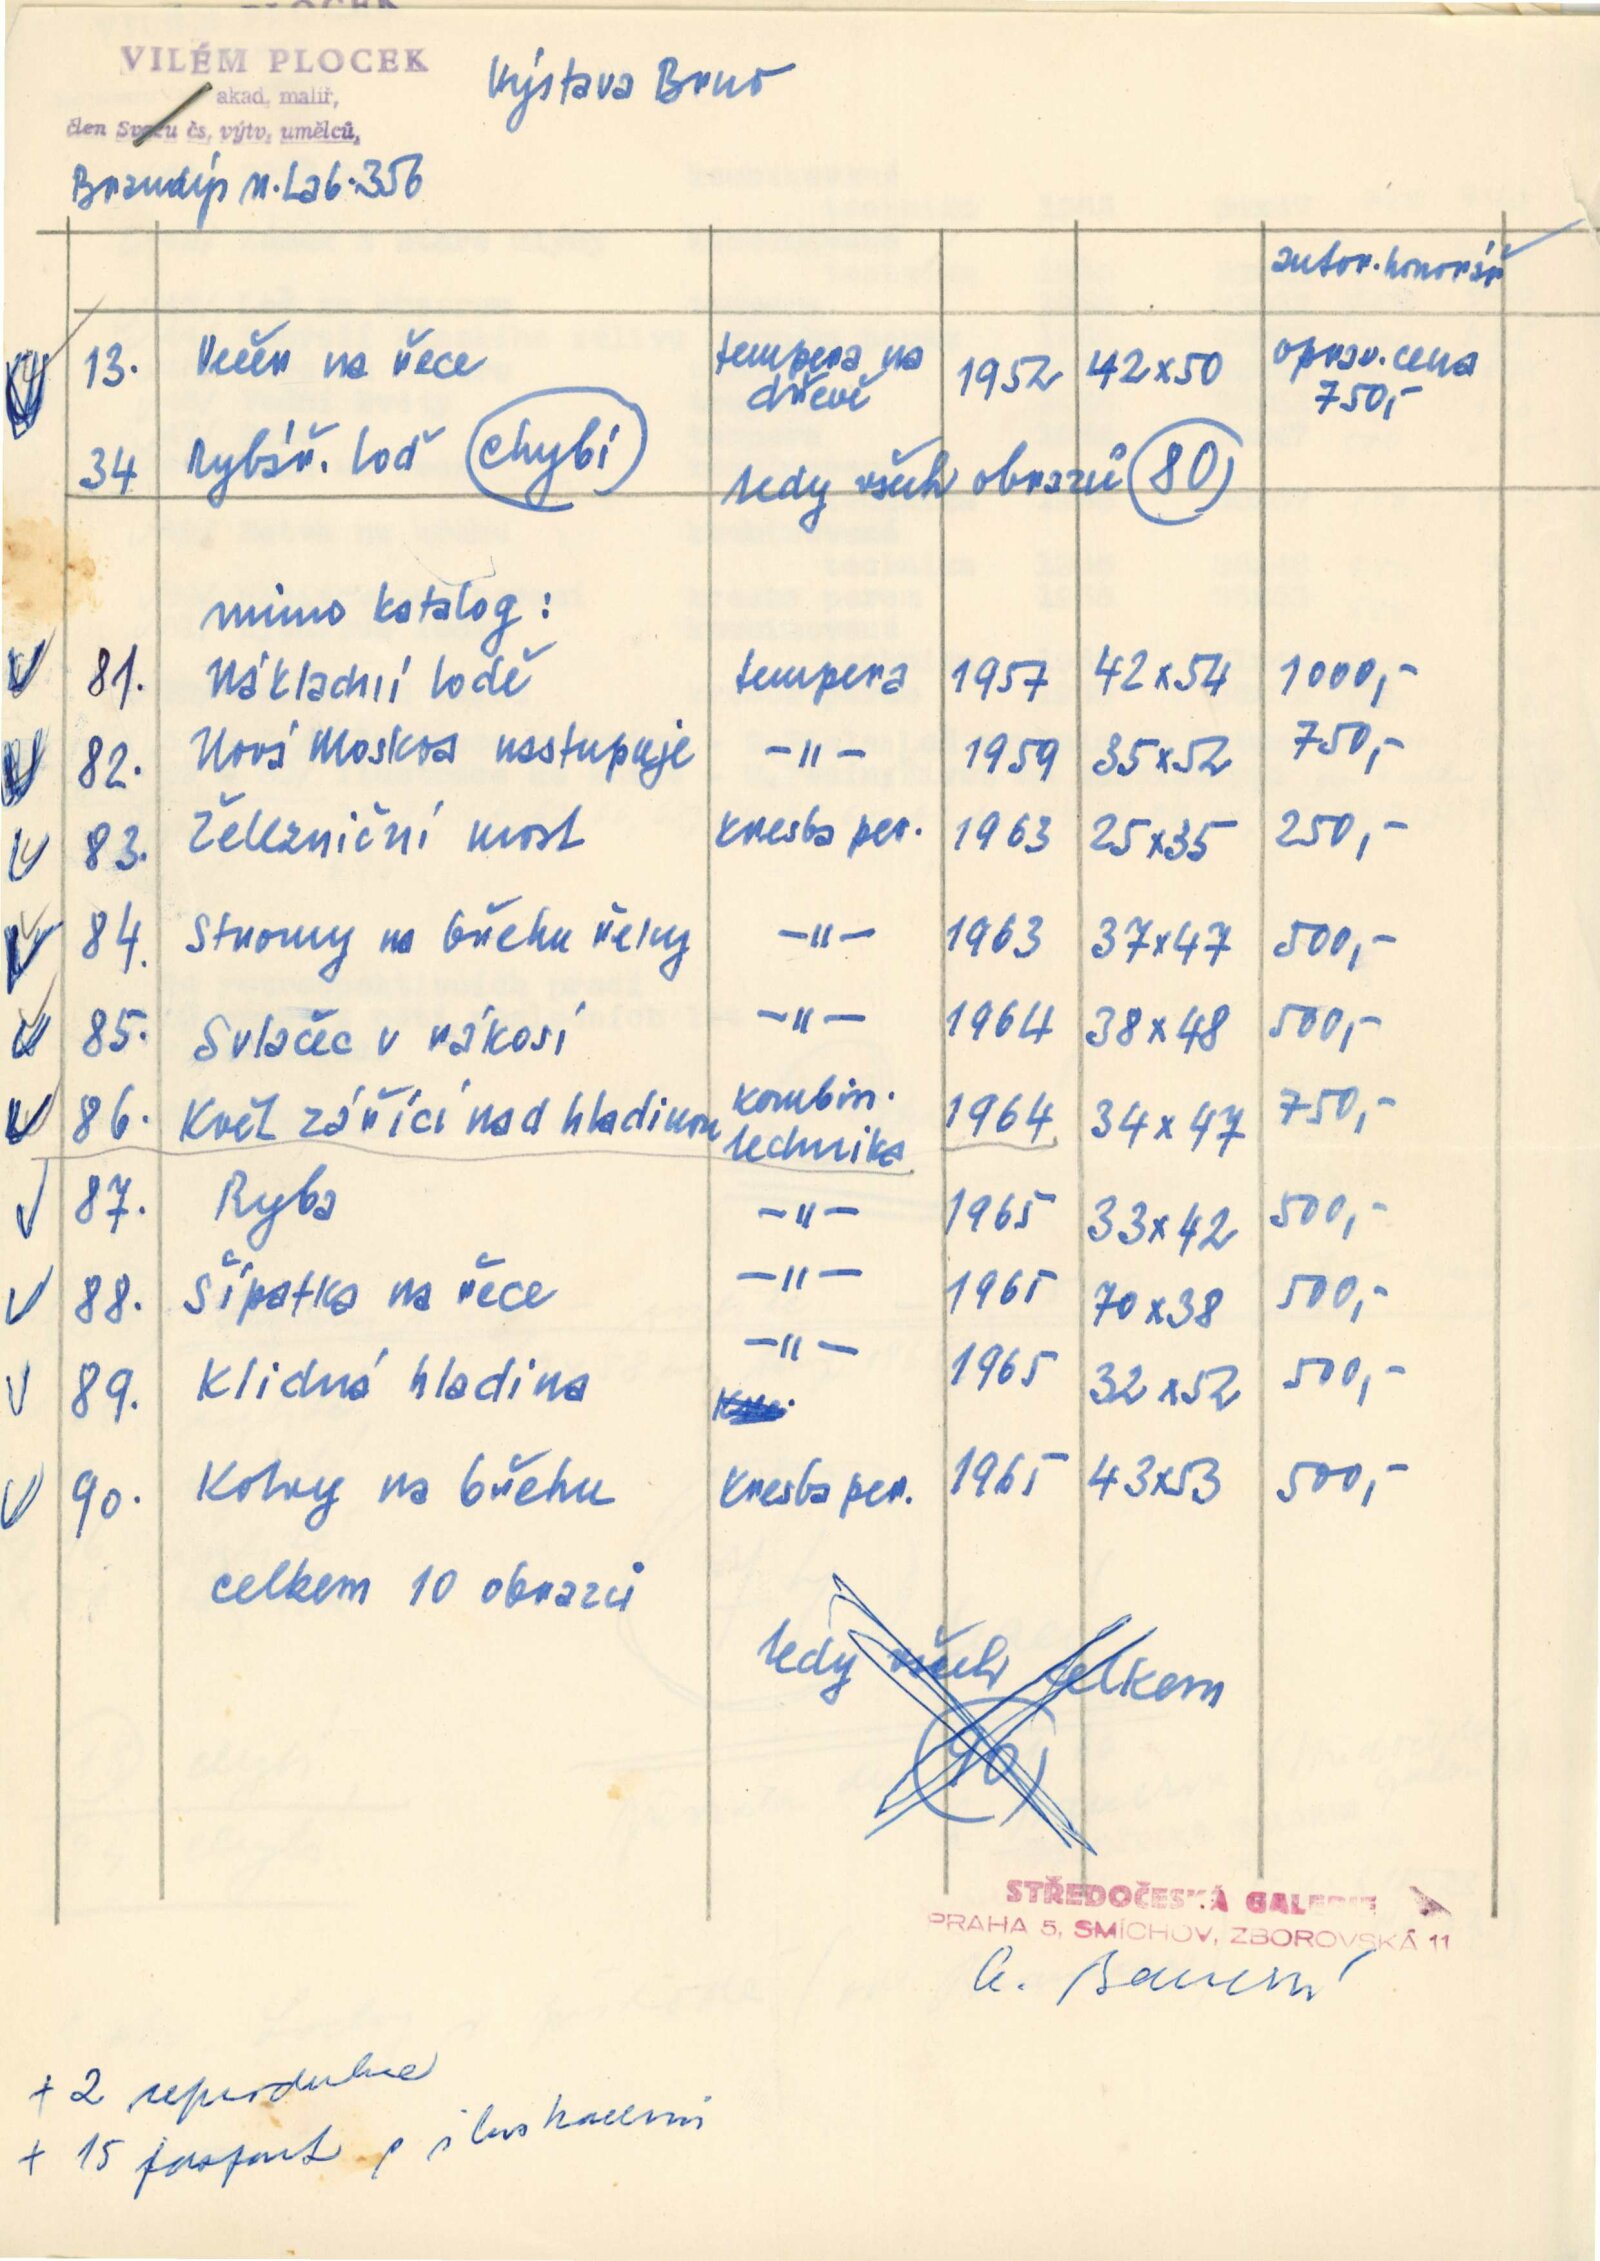 VILÉM PLOCEK
akad. malíř,
člen Svazu čs. výtv. umělců,
Výstava Brno
Brandýs n. Lab. 356
autor. honorář
13. Večer na řece tempera na dřevě 1952 42x50 oprav. cena 750,-
34 Rybář. loď chybí tedy všech obrazů 80
mimo katalog:
81. Nákladní lodě tempera 1957 42x54 1000,-
82. Nová Moskva nastupuje -"- 1959 35x52 750,-
83. Železniční most kresba per. 1963 25x35 250,-
84. Stromy na břehu řeky -"- 1963 37x47 500,-
85. Svlačec v rákosí -"- 1964 38x48 500,-
86. Květ zářící nad hladinou kombin. technika 1964 34x47 750,-
87. Ryba -"- 1965 33x42 500,-
88. Šípatka na řece -"- 1965 70x38 500,-
89. Klidná hladina -"- 1965 32x52 500,-
90. Kotvy na břehu kresba per. 1965 43x53 500,-
celkem 10 obrazů
tedy všech celkem
90
STŘEDOČESKÁ GALERIE
PRAHA 5, SMÍCHOV, ZBOROVSKÁ 11
+ 2 reprodukce
+ 15 paspart s ilustracemi